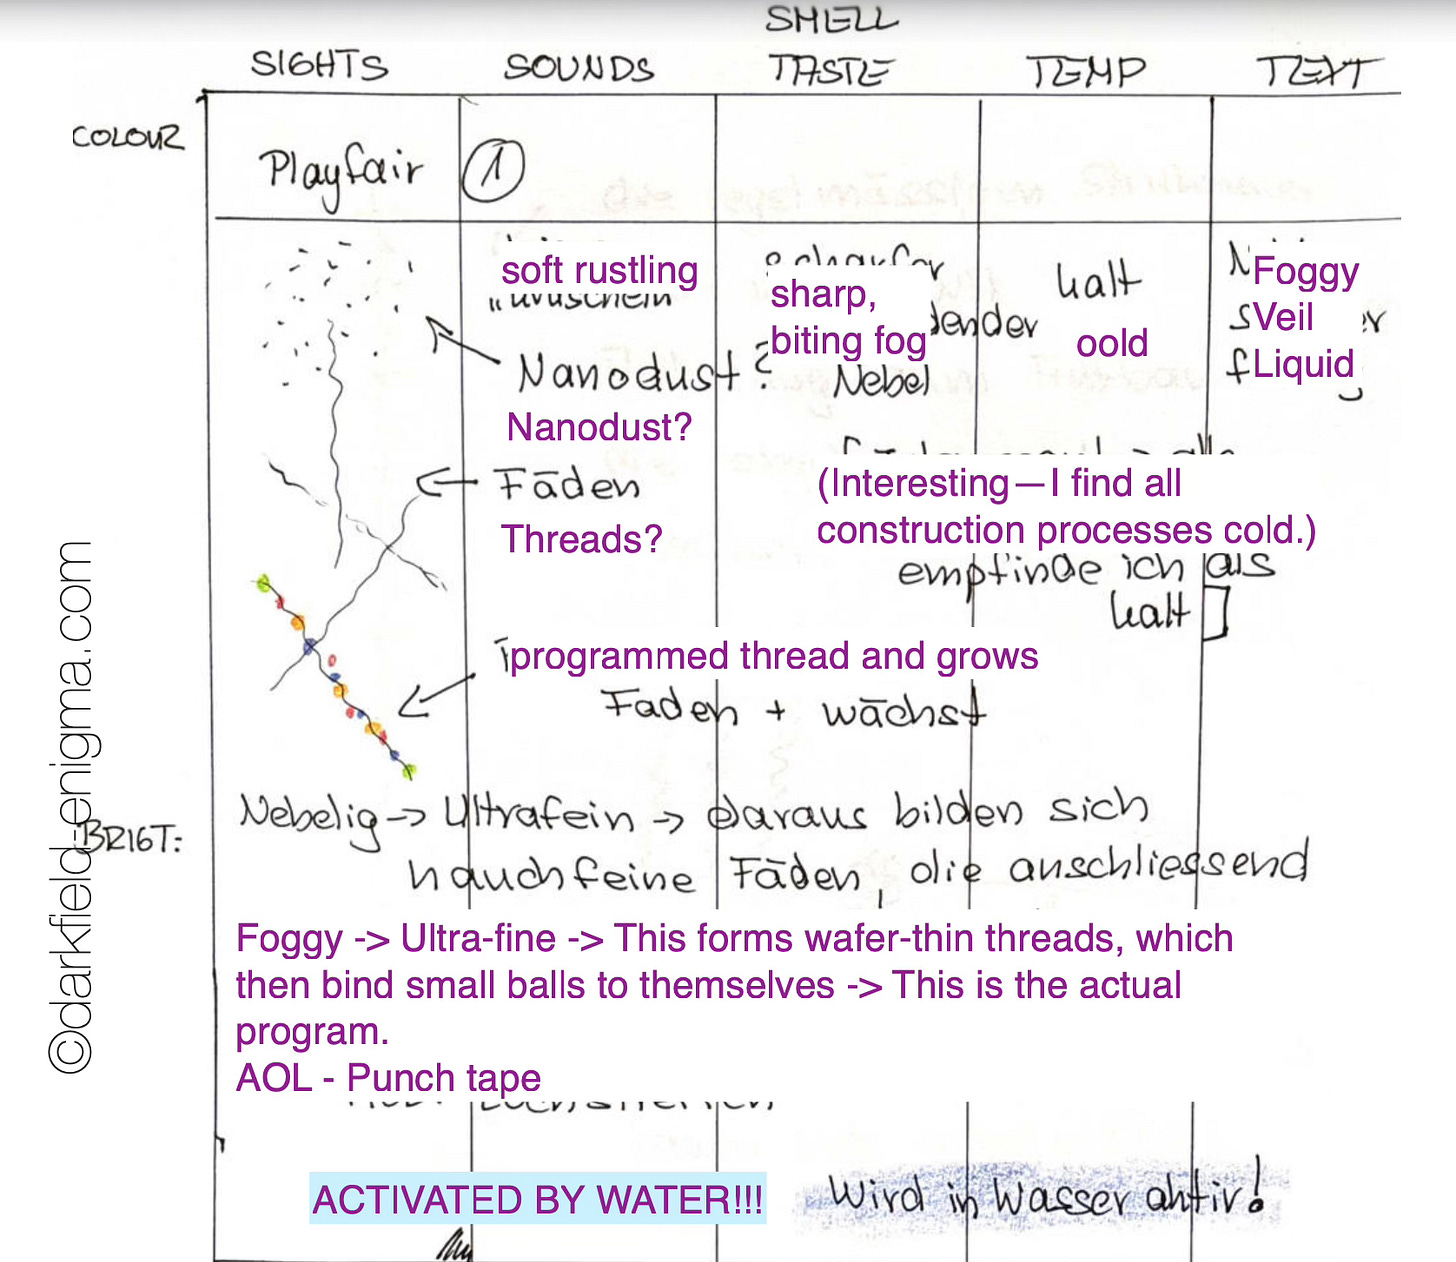 SMELL
SIGHTS SOUNDS TASTE TEMP TEXT
COLOUR
Playfair 1
soft rustling
sharp,
biting fog
Nebel
kalt
oold
Foggy
Veil
Liquid
Nanodust?
Nanodust?
Fāden
Threads?
(Interesting—I find all
construction processes cold.)
empfinde ich als
kalt]
programmed thread and grows
Faden + wāchst
BRIGT:
Nebelig -> Ultrafein -> daraus bilden sich
hauchfeine Fāden, die anschliessend
Foggy -> Ultra-fine -> This forms wafer-thin threads, which
then bind small balls to themselves -> This is the actual
program.
AOL - Punch tape
ACTIVATED BY WATER!!!
Wird in Wasser aktiv!
©darkfield-enigma.com